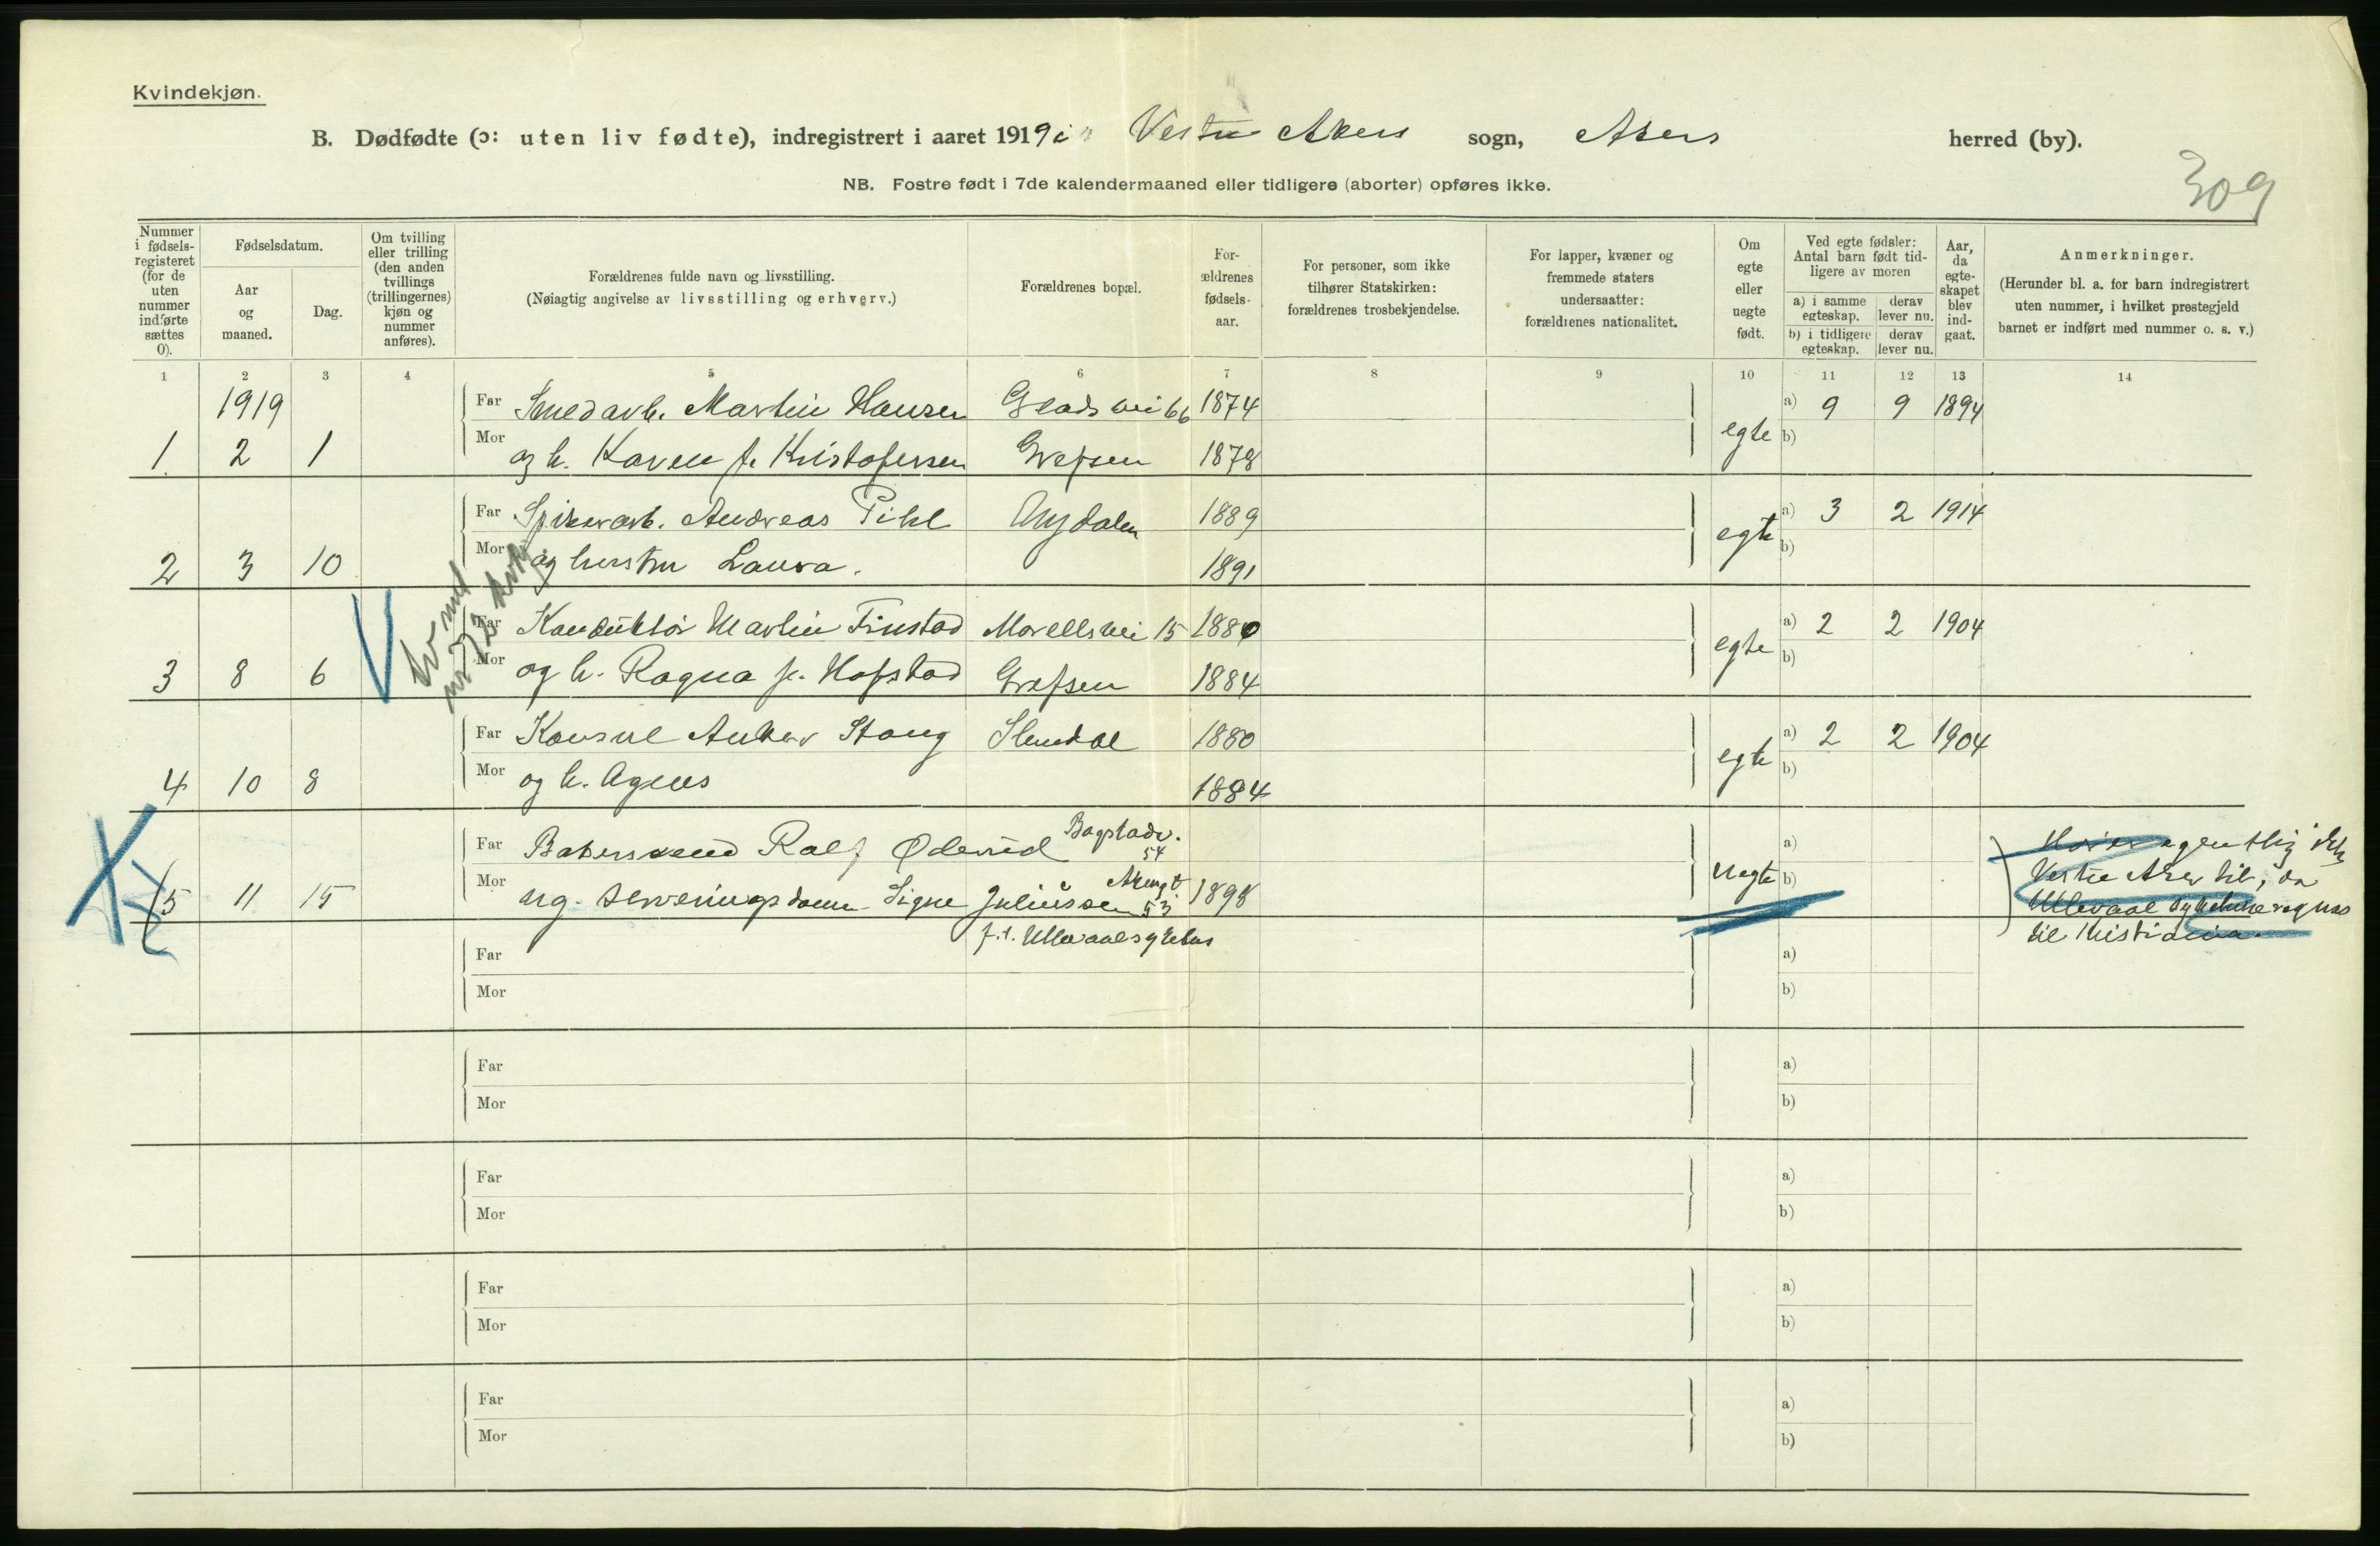 Kvindekjøn.
B. Dødfødte (ɔ: uten liv fødte), indregistrert i aaret 1919 i Vestre Akers sogn, Akers herred (by).
309
NB. Fostre født i 7de kalendermaaned eller tidligere (aborter) opføres ikke.
Nummer i fødsels-registeret (for de uten nummer indførte sættes 0).
Fødselsdatum.
Aar og maaned.
Dag.
Om tvilling eller trilling (den anden tvillings (trillingernes) kjøn og nummer anføres).
Forældrenes fulde navn og livsstilling.
(Nøiagtig angivelse av livsstilling og erhverv.)
Forældrenes bopæl.
For-ældrenes fødsels-aar.
For personer, som ikke tilhører Statskirken: forældrenes trosbekjendelse.
For lapper, kvæner og fremmede staters undersaatter: forældrenes nationalitet.
Om egte eller uegte født.
Ved egte fødsler: Antal barn født tid-ligere av moren
a) i samme egteskap. derav lever nu.
b) i tidligere egteskap. derav lever nu.
Aar, da egte-skapet blev ind-gaat.
Anmerkninger.
(Herunder bl. a. for barn indregistrert uten nummer, i hvilket prestegjeld barnet er indført med nummer o. s. v.)
1 2 3 4 5 6 7 8 9 10 11 12 13 14
1919 Far Smedarb. Martin Hansen Gladsvei 66 1874 a) 9 9 1894
1 2 1 Mor og h. Karen f. Kristofersen Grefsen 1878 egte b)
Far Spikerarb. Andreas Pihl Nydalen 1889 a) 3 2 1914
2 3 10 Mor og hustru Laura. 1891 egte b)
Far Konduktør Martin Finstad Morells vei 15 1880 a) 2 2 1904
3 8 6 Mor og h. Ragna f. Hofstad Grefsen 1884 egte b)
Far Konsul Anker Stang Slemdal 1880 a) 2 2 1904
4 10 8 Mor og h. Agnes 1884 egte b)
Far Bakersvend Ralf Ødeud Bogstadv. 54 a)
5 11 15 Mor ug. serveringsdame Signe Juliussen Akersgt. 53 1898 uegte b)
f.t. Ullevaal sykehus
Hører egentlig ikke
Vestre Aker til, da
Ullevaal Sykehus regnes
til Kristiania.
Far a)
Mor b)
Far a)
Mor b)
Far a)
Mor b)
Far a)
Mor b)
Far a)
Mor b)